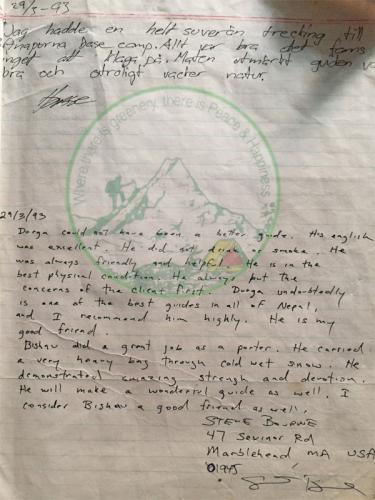 29/3-93
Jag hadde en helt suverän trecking till
Anaporna Base camp. Allt var bra det fanns
inget att klaga på. Maten utmärkt guiden va
bra och otroligt vacker natur.
Where there is greenery, there is Peace & Happiness
29/3/93
Dorga could not have been a better guide. His english
was excellent. He did not drink or smoke. He
was always friendly and helpful. He is in the
best physical condition. He always put the
concerns of the client first. Dorga undoubtedly
is one of the best guides in all of Nepal,
and I recommend him highly. He is my
good friend.
Bishow did a great job as a porter. He carried
a very heavy bag through cold wet snow. He
demonstrated amazing strengh and devotion.
He will make a wonderful guide as well. I
consider Bishow a good friend as well.
STEVE BOURNE
47 Sevinor Rd
Marblehead MA USA
01945